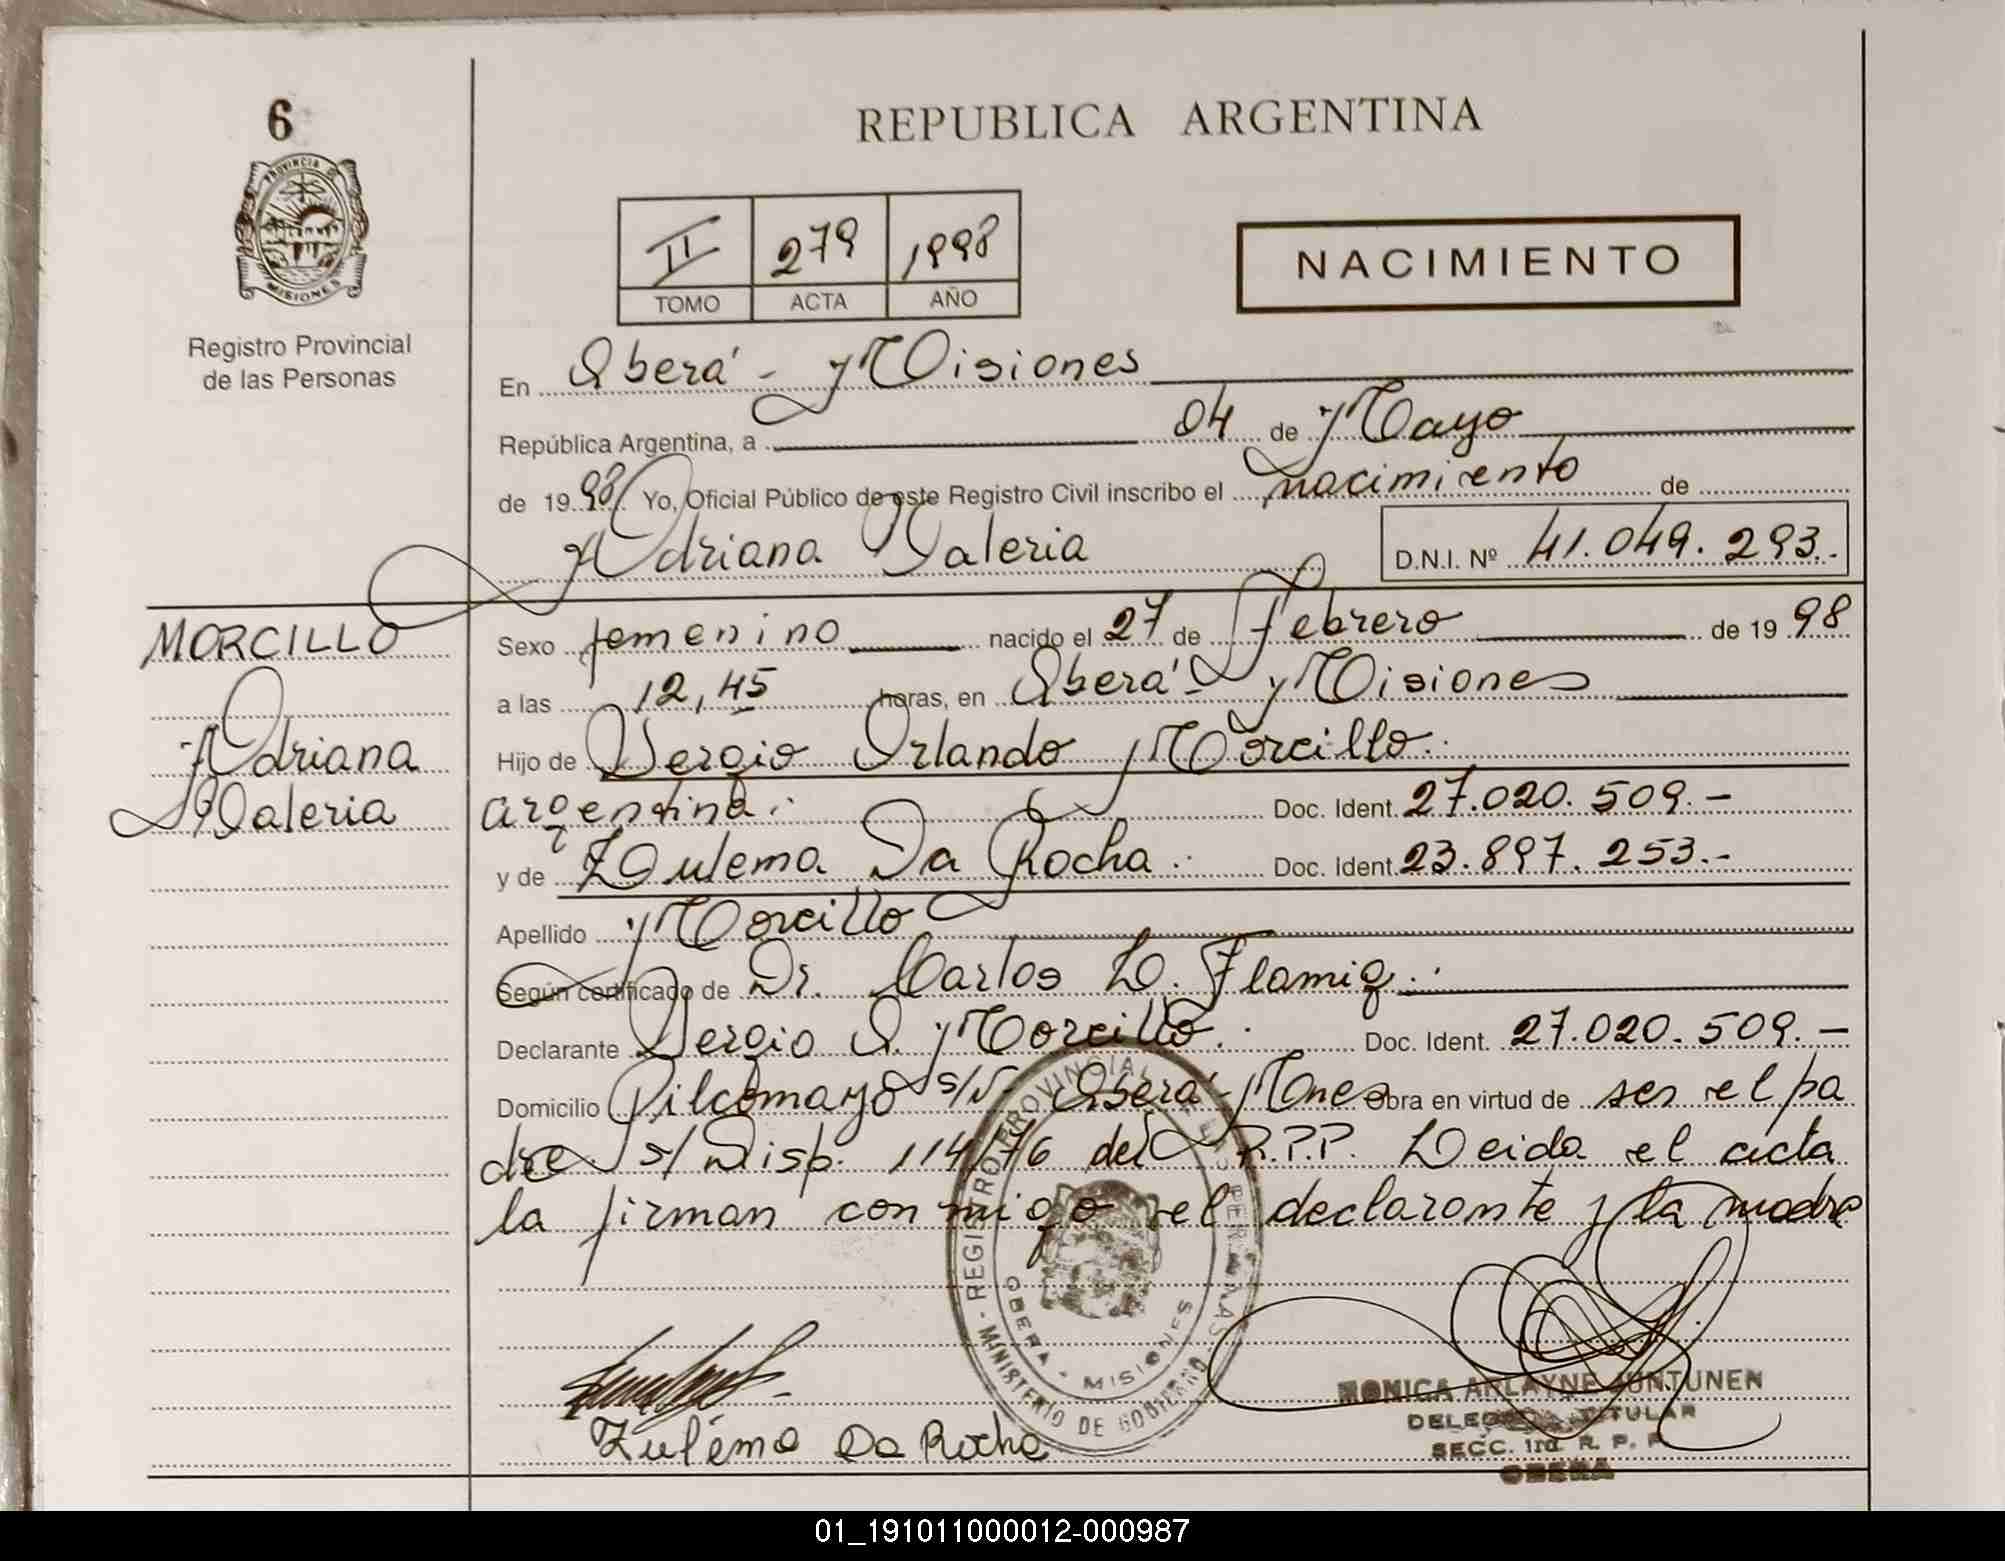 6
PROVINCIA DE
MISIONES
Registro Provincial
de las Personas
REPUBLICA ARGENTINA
II 279 1998
TOMO ACTA AÑO
NACIMIENTO
En Oberá - Misiones
República Argentina, a 04 de Mayo
de 1998 Yo, Oficial Público de este Registro Civil inscribo el nacimiento de
Adriana Valeria D.N.I. Nº 41.049.293..
MORCILLO
Adriana
Valeria
Sexo femenino nacido el 27 de Febrero de 1998
a las 12,45 horas, en Oberá - Misiones
Hijo de Sergio Orlando Morcillo.
argentina. Doc. Ident. 27.020.509.-
y de Zulema Da Rocha. Doc. Ident. 23.897.253.-
Apellido Morcillo
Según certificado de Dr. Carlos L. Flamiq.
Declarante Sergio O. Morcillo. Doc. Ident. 27.020.509.-
Domicilio Pilcomayo s/N Oberá - Mnes obra en virtud de ser el pa
dre s/ Disp. 114/76 del R.P.P. Leida el acta
la firman conmigo el declarante y la madre
- REGISTRO PROVINCIAL DE LAS PERSONAS - MINISTERIO DE GOBIERNO
OBERA - MISIONES
Zulema Da Rocha
MONICA ARLAYNE JUNTUNEN
TITULAR
SECC. 1ra. R. P. P.
OBERA
01_191011000012-000987